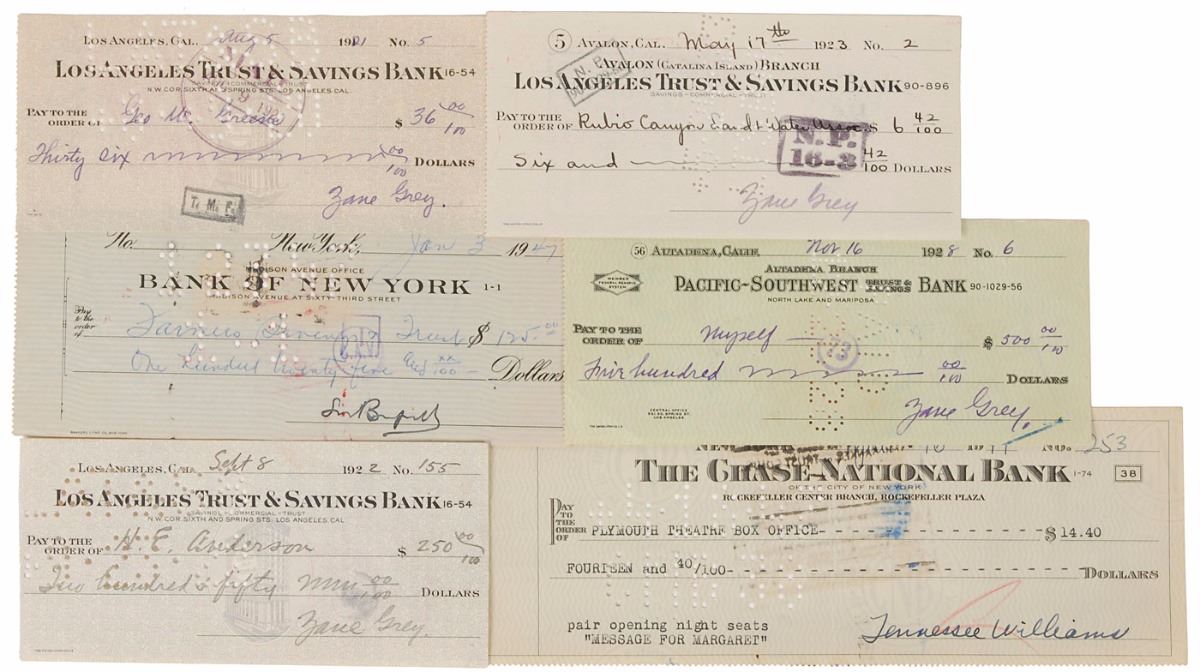 LOS ANGELES, CAL. Aug 5 1921 No. 5
LOS ANGELES TRUST & SAVINGS BANK 16-54
SAVINGS-COMMERCIAL-TRUST
N.W. COR. SIXTH AND SPRING STS. LOS ANGELES, CAL.
PAY TO THE
ORDER OF Geo M. $ 36 00/100
Thirty six 00/100 DOLLARS
Zane Grey.
T. M. F.
5 AVALON, CAL. May 17th 1923 No. 2
AVALON (CATALINA ISLAND) BRANCH
LOS ANGELES TRUST & SAVINGS BANK 90-896
SAVINGS-COMMERCIAL-TRUST
N. P.
PAY TO THE
ORDER OF Rubio Canyon Land & Water Assoc. $ 6 42/100
N.P.
16-3
Six and 42/100 DOLLARS
Zane Grey
No. New York, Jan 3 1947
MADISON AVENUE OFFICE
BANK OF NEW YORK 1-1
MADISON AVENUE AT SIXTY THIRD STREET
Pay
to the
order
of Trust $ 125.00
One hundred twenty five and xx/100 Dollars
56 ALTADENA, CALIF. Nov 16 1928 No. 6
MEMBER
FEDERAL RESERVE
SYSTEM
ALTADENA BRANCH
PACIFIC-SOUTHWEST TRUST & SAVINGS BANK 90-1029-56
NORTH LAKE AND MARIPOSA
PAY TO THE
ORDER OF Myself $ 500 00/100
73
Five hundred 00/100 DOLLARS
CENTRAL OFFICE
LOS ANGELES
Zane Grey.
LOS ANGELES, CAL. Sept 8 1922 No. 155
LOS ANGELES TRUST & SAVINGS BANK 16-54
SAVINGS-COMMERCIAL-TRUST
N.W. COR. SIXTH AND SPRING STS. LOS ANGELES, CAL.
PAY TO THE
ORDER OF H. E. Anderson $ 250 00/100
Two hundred & fifty 00/100 DOLLARS
Zane Grey.
No. 253
THE CHASE NATIONAL BANK 1-74 38
OF THE CITY OF NEW YORK
ROCKEFELLER CENTER BRANCH, ROCKEFELLER PLAZA
PAY
TO
THE
ORDER
OF PLYMOUTH THEATRE BOX OFFICE- - - - - - - - - - - $14.40
FOURTEEN and 40/100- - - - - - - - - - - DOLLARS
pair opening night seats
"MESSAGE FOR MARGARET"
Tennessee Williams